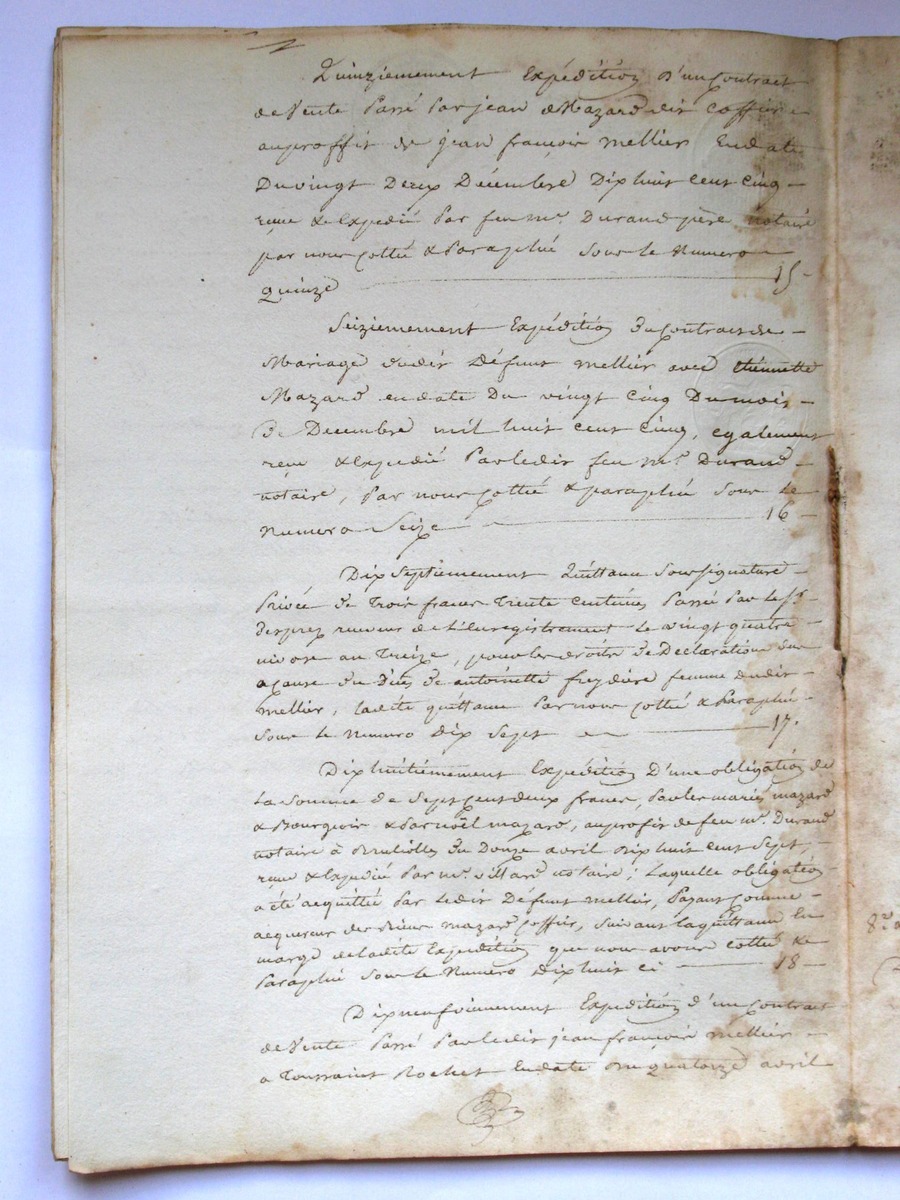 Quinziemement Expédition d'un Contract
de Vente Passé Par jean Mazard dit Coffier
au proffit de jean françois mellier En date
Du vingt Deux Décembre Dix huit cent Cinq
reçu & Expedié Par feu mr. Durand père notaire
par nous Cotté & Paraphé Sous le Numero
Quinze 15
Seiziemement Expédition du Contrat de
Mariage dudit Défunt mellier avec étiennette
Mazard en date Du vingt Cinq Du mois
De Decembre mil huit Cent Cinq, egalement
reçu & Expedié Par ledit feu mr. Durand
notaire, par nous Cotté & paraphé Sous le
Numero Seize 16
Dix Septiemement Quittance Sous Signature
Privée de Trois francs Trente Centimes Passé Par le Sr.
receveur de L'Enregistrement Le vingt quatre
nivose an Treize, pour les droits de Declaration Du
a cause du Décès de antoinette freydière femme dudit
mellier, ladite quittance Par nous Cotté & Paraphé
Sous le Numero Dix Sept 17.
Dix huitiemement Expédition D'une obligation de
La Somme de Sept Cent deux francs, Par les mariés mazard
& Bourgeois & Par noël mazard, au profit de feu mr. Durand
notaire à Brulliolles du Douze avril Dix huit Cent Sept,
reçue & Expedié Par mr. notaire; Laquelle obligation
a été acquittée Par Ledit Défunt mellier, Payant Comme
acquereur de mazard Coffier, Suivant la quittance En
marge de ladite Expedition que nous avons Cotté &
Paraphé Sous le Numero Dix huit Ci 18
Dix neufviemement Expédition d'un Contract
de Vente Passé Par ledit jean françois mellier
a Toussaint Rochet En date Du quatorze avril